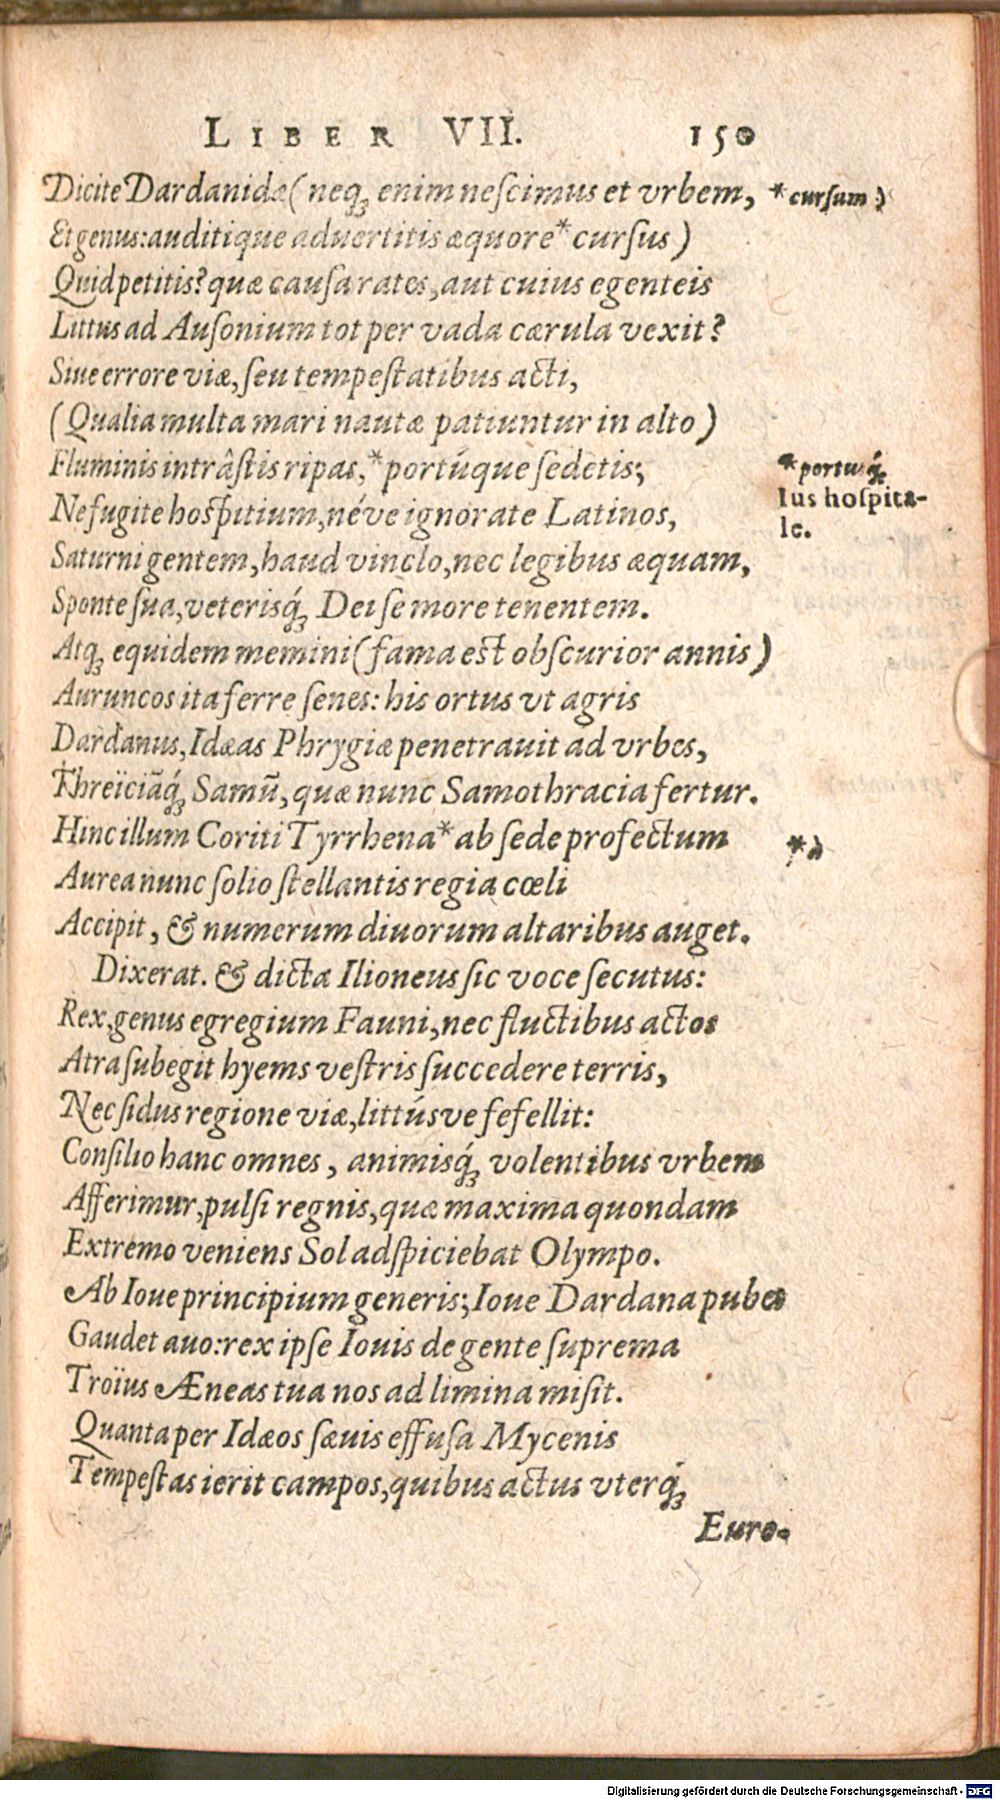 LIBER VII. 150
Dicite Dardanidæ (neq́ꝫ enim nescimus et vrbem, *cursum)
Et genus: auditique aduertitis æquore* cursus)
Quid petitis? quæ causa rates, aut cuius egenteis
Littus ad Ausonium tot per vada cærula vexit?
Siue errore viæ, seu tempestatibus acti,
(Qualia multa mari nautæ patiuntur in alto)
Fluminis intrâstis ripas, *portúque sedetis; *portuq́ꝫ
Ne fugite hospitium, néve ignorate Latinos, Ius hospita-
le.
Saturni gentem, haud vinclo, nec legibus æquam,
Sponte sua, veterisq́ꝫ Dei se more tenentem.
Atqꝫ equidem memini (fama est obscurior annis)
Auruncos ita ferre senes: his ortus vt agris
Dardanus, Idæas Phrygiæ penetrauit ad vrbes,
Threïciãq́ꝫ Samũ, quæ nunc Samothracia fertur.
Hinc illum Coriti Tyrrhena* ab sede profectum *à
Aurea nunc solio stellantis regia cœli
Accipit, & numerum diuorum altaribus auget.
Dixerat. & dicta Ilioneus sic voce secutus:
Rex, genus egregium Fauni, nec fluctibus actos
Atra subegit hyems vestris succedere terris,
Nec sidus regione viæ, littúsve fefellit:
Consilio hanc omnes, animisq́ꝫ volentibus vrbem
Afferimur, pulsi regnis, quæ maxima quondam
Extremo veniens Sol adspiciebat Olympo.
Ab Ioue principium generis; Ioue Dardana pubes
Gaudet avo: rex ipse Iouis de gente suprema
Troïus Æneas tua nos ad limina misit.
Quanta per Idæos sæuis effusa Mycenis
Tempestas ierit campos, quibus actus vterq́ꝫ
Euro-
Digitalisierung gefördert durch die Deutsche Forschungsgemeinschaft - DFG